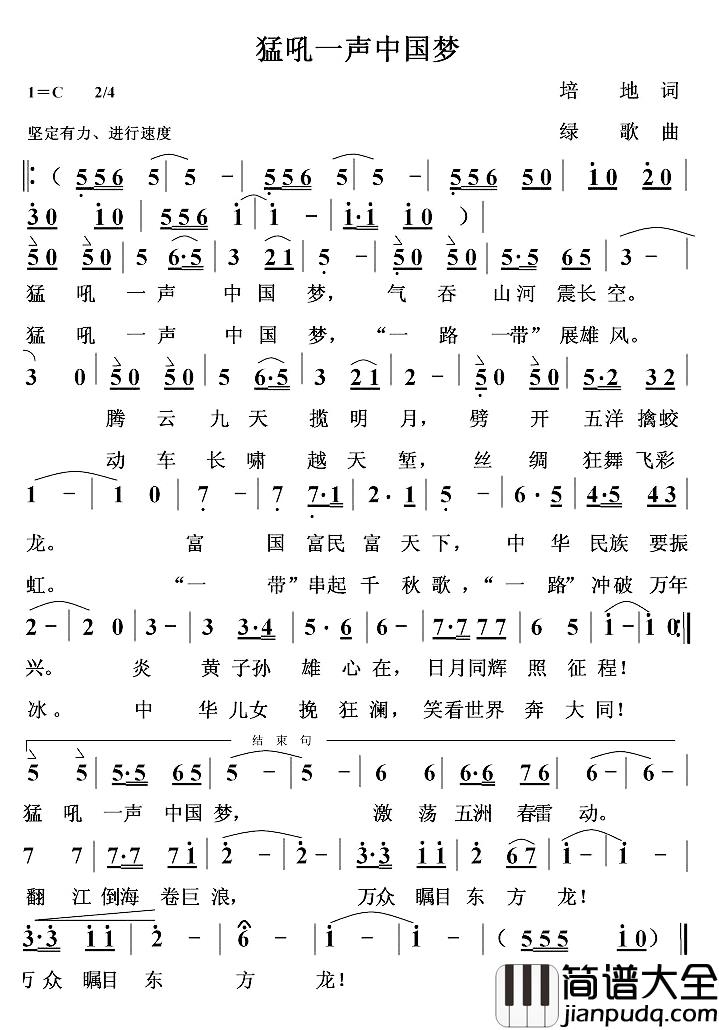 猛吼一声中国梦
1=C 2/4 培 地 词
坚定有力、进行速度 绿 歌 曲
‖:( 5 5 6 | 5 5 - | 5 5 6 | 5 5 - | 5 5 6 5 0 | 1 0 2 0 |
3 0 1 0 | 5 5 6 1 | 1 - | 1·1 1 0 )|
5 0 5 0 | 5 6·5 | 3 2 1 | 5 - | 5 0 5 0 | 5·5 6 5 | 3 - |
猛 吼 一 声 中 国 梦, 气 吞 山河 震长 空。
猛 吼 一 声 中 国 梦, “一 路 一带” 展雄 风。
3 0 | 5 0 5 0 | 5 6·5 | 3 2 1 | 2 - | 5 0 5 0 | 5·2 3 2 |
腾 云 九 天 揽 明 月, 劈 开 五洋 擒蛟
动 车 长 啸 越 天 堑, 丝 绸 狂舞 飞彩
1 - | 1 0 | 7 - | 7 7·1 | 2·1 | 5 - | 6·5 | 4·5 4 3 |
龙。 富 国 富民 富 天 下, 中 华 民族 要振
虹。 “一 带”串起 千 秋 歌,“一 路” 冲破 万年
2 - | 2 0 | 3 - | 3 3·4 | 5·6 | 6 - | 7·7 7 7 | 6 5 | 1 - | 1 0 :‖
兴。 炎 黄 子孙 雄 心 在, 日月同辉 照 征 程!
冰。 中 华 儿女 挽 狂 澜, 笑看世界 奔 大 同!
结 束 句
5 5 | 5·5 6 5 | 5 - | 5 - | 6 6 | 6·6 7 6 | 6 - | 6 - |
猛 吼 一声 中国 梦, 激 荡 五洲 春雷 动。
7 7 | 7·7 7 1 | 2 - | 2 - | 3·3 1 1 | 2 6 7 | 1 - | 1 - |
翻 江 倒海 卷巨 浪, 万众 瞩目 东 方 龙!
3·3 1 1 | 2 - | 6 - | 1 - | 1 - | ( 5 5 5 1 0 ) ‖
万 众 瞩目 东 方 龙!
简谱大全
jianpudq.com